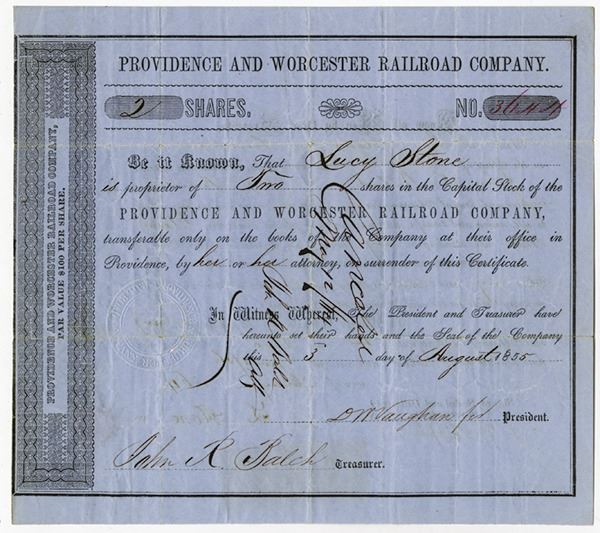 PROVIDENCE AND WORCESTER RAILROAD COMPANY.
2 SHARES. NO. 3644
Be it Known, That Lucy Stone
is proprietor of Two shares in the Capital Stock of the
PROVIDENCE AND WORCESTER RAILROAD COMPANY,
transferable only on the books of the Company at their office in
Providence, by her or her attorney, on surrender of this Certificate.
In Witness Whereof, The President and Treasurer have
hereunto set their hands and the Seal of the Company
this 3 day of August 1855
D W Vaughan President.
John R Balch Treasurer.
PROVIDENCE AND WORCESTER RAILROAD COMPANY,
PAR VALUE $100 PER SHARE.
Cancelled